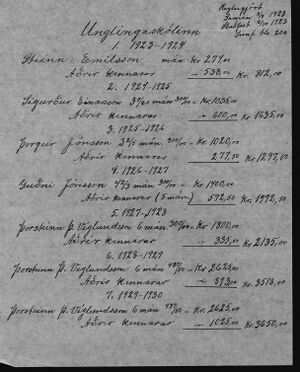 Reglugjörð
Samin 3/9 1923
Staðfest 5/10 1923
Unglingaskólinn
1. 1923-1924
Steinn Emilsson mán kr 274,00
Aðrir kennarar - 538,00 Kr. 812,00
2. 1924-1925
Sigurður Einarsson Kr. 1035,00
Aðrir kennarar - 600,00 Kr. 1635,00
3. 1925-1926
Þorgeir Jónsson mán. Kr. 1020,00
Aðrir kennarar 277,50 Kr 1297,50
4. 1926-1927
Guðni Jónsson mán Kr 1400,00
Aðrir kennarar (5 mán) 592,50 Kr. 1992,50
5. 1927-1928
Þorsteinn Þ. Víglundsson 6 mán Kr. 1800,00
Aðrir kennarar - 335,00 Kr. 2135,00
6. 1928-1929
Þorsteinn Þ. Víglundsson 6 mán Kr. 2625,00
Aðrir kennarar - 893,00 Kr. 3518,00
7. 1929-1930
Þorsteinn Þ. Víglundsson 6 mán Kr. 2625,00
Aðrir kennarar - 1025,00 Kr. 3650,00